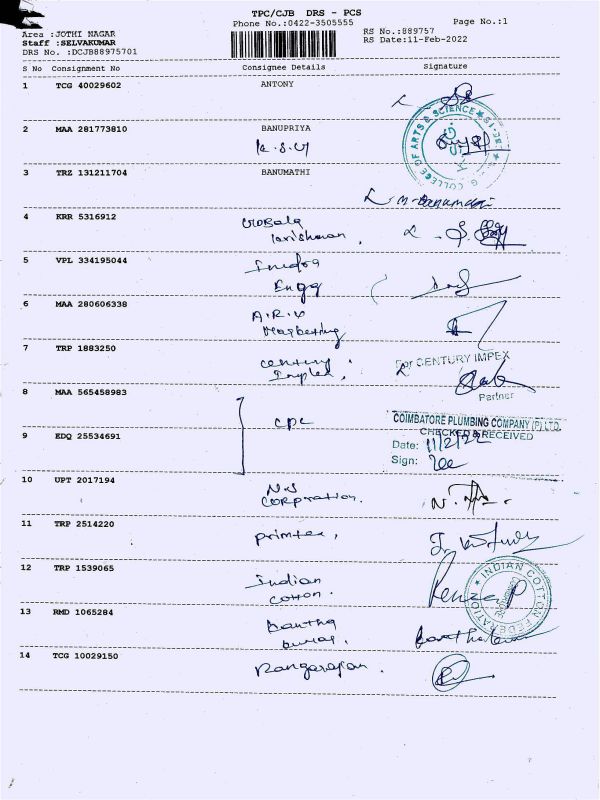 TPC/CJB DRS - PCS
Phone No.:0422-3505555
Page No.:1
Area :JOTHI NAGAR
Staff :SELVAKUMAR
DRS No. :DCJB88975701
RS No.:889757
RS Date:11-Feb-2022
S No Consignment No Consignee Details Signature
1 TCG 40029602 ANTONY
2 MAA 281773810 BANUPRIYA
K.S.U
COLLEGE OF ARTS & SCIENCE
3 TRZ 131211704 BANUMATHI
M. Banumathi
4 KRR 5316912
5 VPL 334195044 Indra
Engg
6 MAA 280606338 A.R.V
Marketing
7 TRP 1883250 century
Implex,
For CENTURY IMPEX
Partner
8 MAA 565458983
cpc
COIMBATORE PLUMBING COMPANY (P) LTD.
CHECKED & RECEIVED
Date: 11/2/22
Sign:
9 EDQ 25534691
10 UPT 2017194 N.S
corporation.
11 TRP 2514220 primtex,
12 TRP 1539065 Indian
cotton.
INDIAN COTTON FEDERATION
13 RMD 1065284
14 TCG 10029150 Rangarajan.